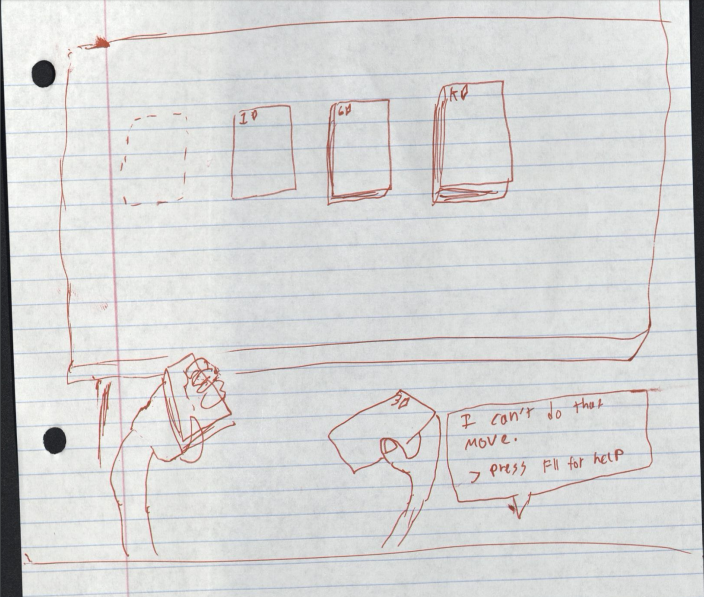 1♦
6♦
K♦
3♦
I can't do that
move.
> press F11 for help